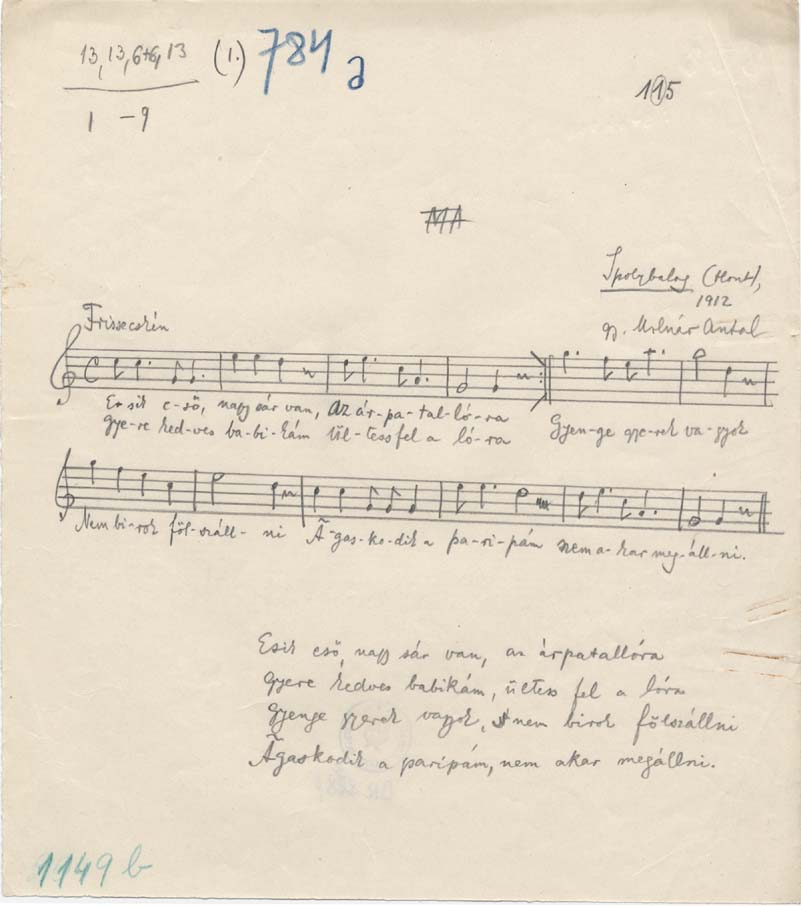 13, 13, 6+6, 13 (1.) 784 a
1 – 9
115
MA
Ipolybalog (Hont),
1912
gy. Molnár Antal
Frissecskén
Es-ik e-ső, nagy sár van, Az ár-pa-tal-ló-ra
gye-re ked-ves ba-bi-kám ül-tess fel a ló-ra
Gyen-ge gye-rek va-gyok
Nem bi-rok föl-száll-ni Á-gas-ko-dik a pa-ri-pám nem a-kar meg-áll-ni.
Esik eső, nagy sár van, az árpatallóra
Gyere kedves babikám, ültess fel a lóra
Gyenge gyerek vagyok, nem birok fölszállni
Ágaskodik a paripám, nem akar megállni.
1149 b